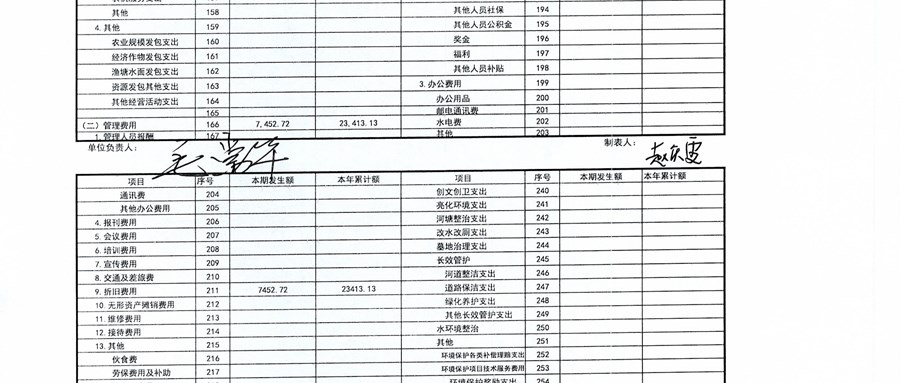 其他 158 其他人员社保 194
4.其他 159 其他人员公积金 195
农业规模发包支出 160 奖金 196
经济作物发包支出 161 福利 197
渔塘水面发包支出 162 其他人员补贴 198
资源发包其他支出 163 3.办公费用 199
其他经营活动支出 164 办公用品 200
165 邮电通讯费 201
(二)管理费用 166 7,452.72 23,413.13 水电费 202
1.管理人员报酬 167 其他 203
单位负责人: 制表人:
项目 序号 本期发生额 本年累计额 项目 序号 本期发生额 本年累计额
通讯费 204 创文创卫支出 240
其他办公费用 205 亮化环境支出 241
4.报刊费用 206 河塘整治支出 242
5.会议费用 207 改水改厕支出 243
6.培训费用 208 墓地治理支出 244
7.宣传费用 209 长效管护 245
8.交通及差旅费 210 河道整洁支出 246
9.折旧费用 211 7452.72 23413.13 道路保洁支出 247
10.无形资产摊销费用 212 绿化养护支出 248
11.维修费用 213 其他长效管护支出 249
12.接待费用 214 水环境整治 250
13.其他 215 其他 251
伙食费 216 环境保护各类补偿理赔支出 252
劳保费用及补助 217 环境保护项目技术服务费用 253
环境保护奖励支出 254